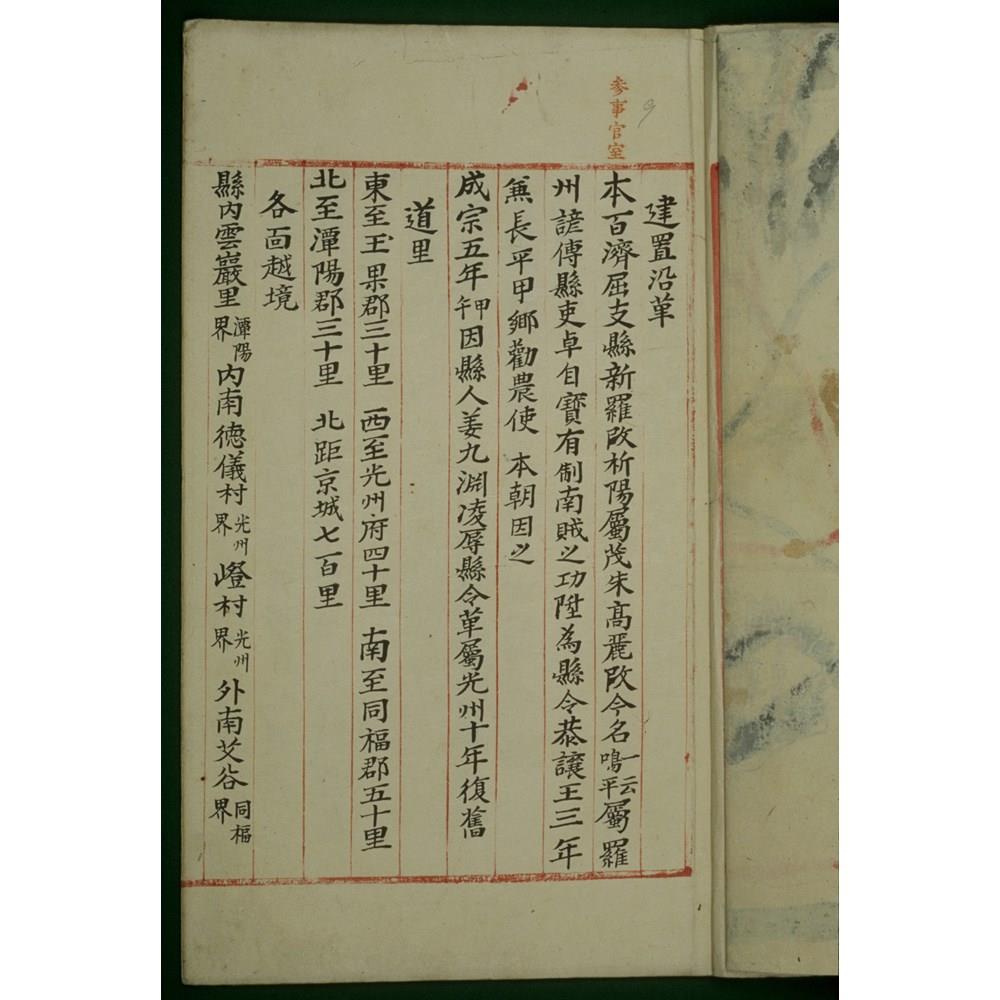 參事官室
9
建置沿革
本百濟屈支縣新羅改析陽屬茂朱高麗改今名一云鳴平屬羅
州諺傳縣吏卓自寶有制南賊之功陞為縣令恭讓王三年
兼長平甲鄉勸農使 本朝因之
成宗五年甲午因縣人姜九淵凌辱縣令革屬光州十年復舊
道里
東至玉果郡三十里 西至光州府四十里 南至同福郡五十里
北至潭陽郡三十里 北距京城七百里
各面越境
縣內雲巖里潭陽界內南德儀村光州界嶝村光州界外南艾谷同福界